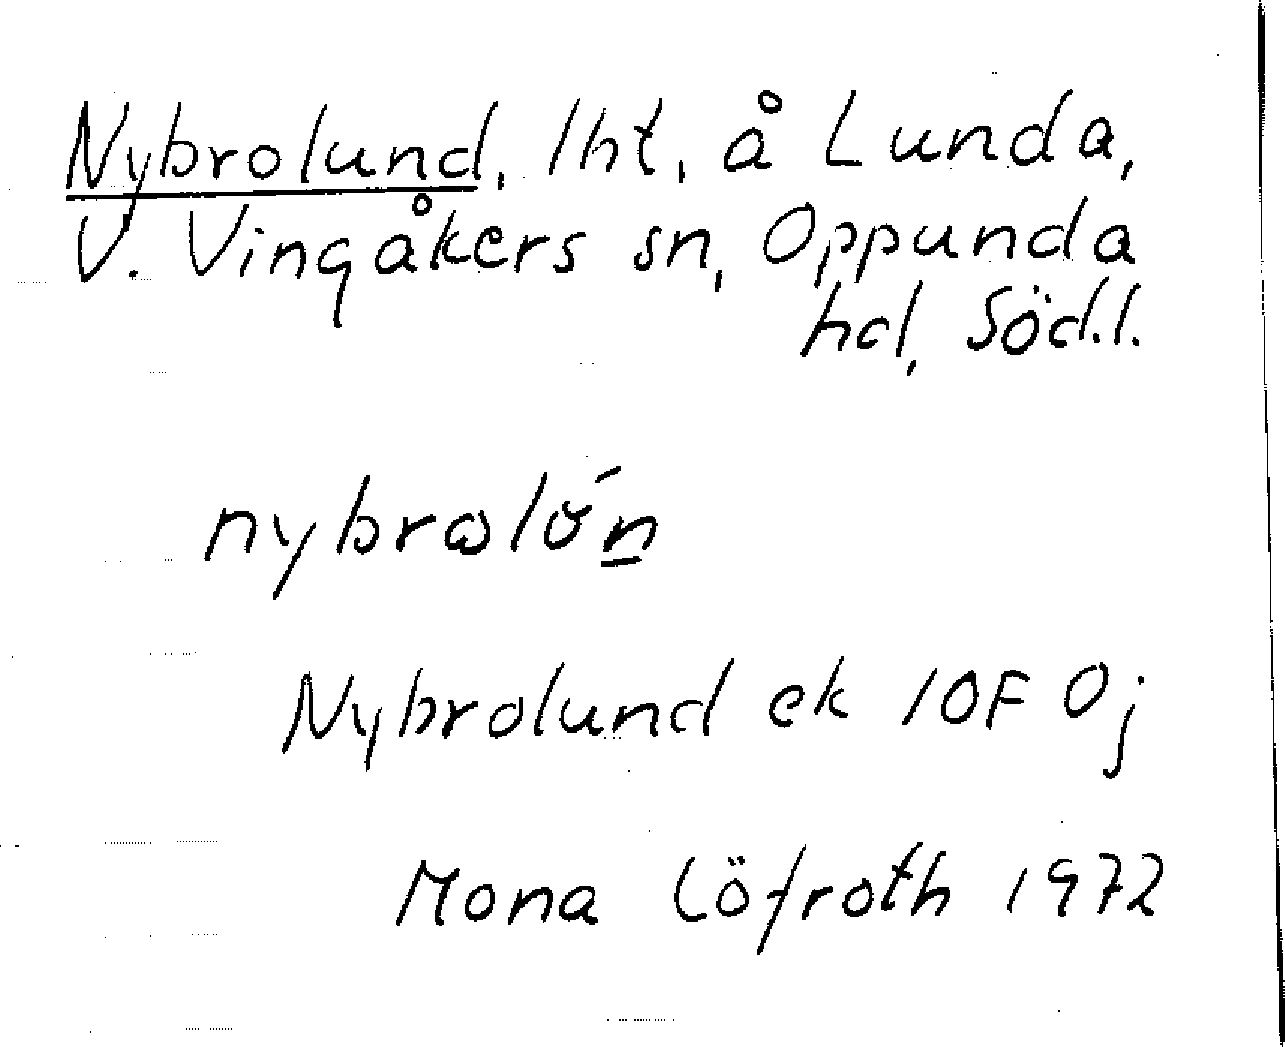 Nybrolund, lht, å Lunda,
V. Vingåkers sn, Oppunda
hd, Söd.l.
nybrωlv́n̲
Nybrolund ek 10F 0j
Mona Löfroth 1972